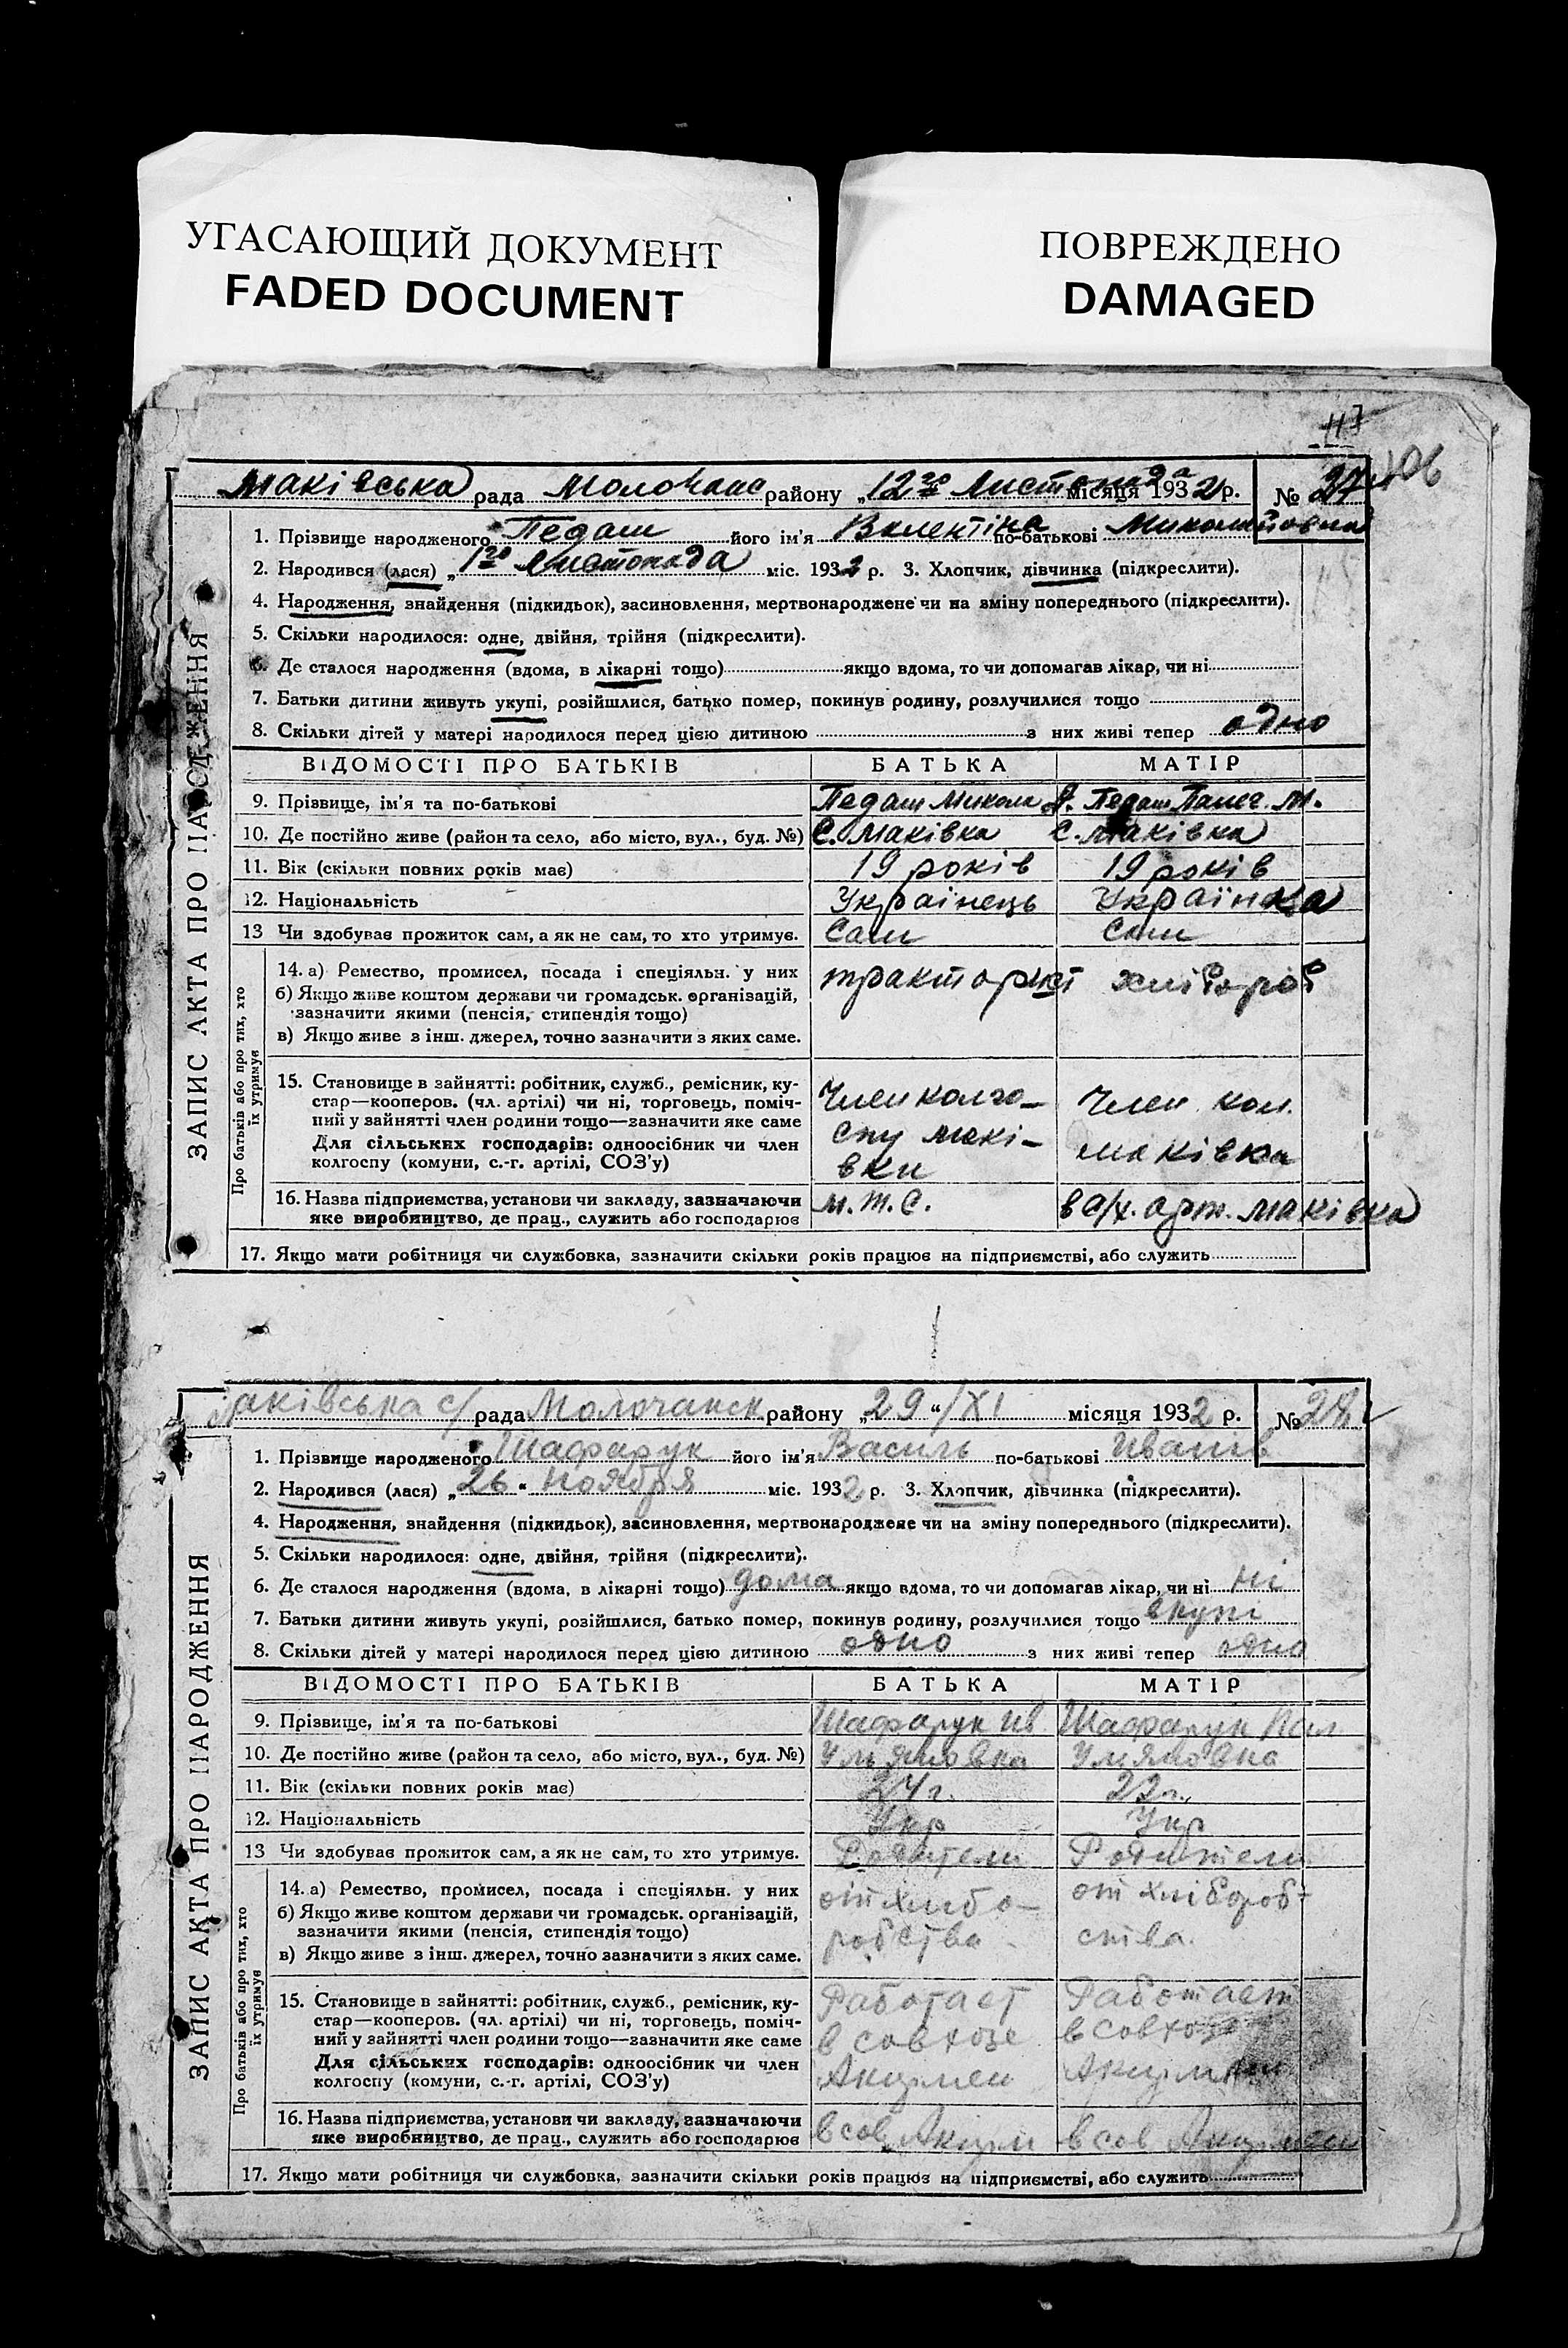 УГАСАЮЩИЙ ДОКУМЕНТ
FADED DOCUMENT
ПОВРЕЖДЕНО
DAMAGED
117
106
Маківська рада Молочанс району „12го Листопада місяця 1932 р. № 27
ЗАПИС АКТА ПРО НАРОДЖЕННЯ
1. Прізвище народженого Педаш його ім'я Валентіна по-батькові Миколайовна
2. Народився (лася) „1го Листопада міс. 1932 р. 3. Хлопчик, дівчинка (підкреслити).
4. Народження, знайдення (підкидьок), засиновлення, мертвонароджене чи на зміну попереднього (підкреслити).
5. Скільки народилося: одне, двійня, трійня (підкреслити).
6. Де сталося народження (вдома, в лікарні тощо) якщо вдома, то чи допомагав лікар, чи ні
7. Батьки дитини живуть укупі, розійшлися, батько помер, покинув родину, розлучилися тощо
8. Скільки дітей у матері народилося перед цією дитиною з них живі тепер одно
ВІДОМОСТІ ПРО БАТЬКІВ БАТЬКА МАТІР
9. Прізвище, ім'я та по-батькові Педаш Микол Педаш М.
10. Де постійно живе (район та село, або місто, вул., буд. №) С. Маківка С. Маківка
11. Вік (скільки повних років має) 19 років 19 років
12. Національність Українець Українка
13 Чи здобував прожиток сам, а як не сам, то хто утримув. Сам Сам
Про батьків або про тих, хто їх утримує
14. а) Ремество, промисел, посада і спеціяльн. у них тракторист хлібороб
б) Якщо живе коштом держави чи громадськ. організацій,
зазначити якими (пенсія, стипендія тощо)
в) Якщо живе з інш. джерел, точно зазначити з яких саме.
15. Становище в зайнятті: робітник, служб., ремісник, ку-
стар—кооперов. (чл. артілі) чи ні, торговець, поміч-
ний у зайнятті член родини тощо—зазначити яке саме
Для сільських господарів: одноосібник чи член
колгоспу (комуни, с.-г. артілі, СОЗ'у)
Член колго-
спу макі-
вки
Член кол.
маківка
16. Назва підприємства, установи чи закладу, зазначаючи
яке виробництво, де прац., служить або господарює
М.Т.С. в с/х. арт. маківка
17. Якщо мати робітниця чи службовка, зазначити скільки років працює на підприємстві, або служить
аківська с/ рада Молочанск району „29“/XI місяця 1932 р. № 28
ЗАПИС АКТА ПРО НАРОДЖЕННЯ
1. Прізвище народженого Шафарук його ім'я Василь по-батькові Иванів
2. Народився (лася) „26“ ноября міс. 1932 р. 3. Хлопчик, дівчинка (підкреслити).
4. Народження, знайдення (підкидьок), засиновлення, мертвонароджене чи на зміну попереднього (підкреслити).
5. Скільки народилося: одне, двійня, трійня (підкреслити).
6. Де сталося народження (вдома, в лікарні тощо) дома якщо вдома, то чи допомагав лікар, чи ні ні
7. Батьки дитини живуть укупі, розійшлися, батько помер, покинув родину, розлучилися тощо вкупі
8. Скільки дітей у матері народилося перед цією дитиною одно з них живі тепер одно
ВІДОМОСТІ ПРО БАТЬКІВ БАТЬКА МАТІР
9. Прізвище, ім'я та по-батькові Шафарук Ив Шафарук
10. Де постійно живе (район та село, або місто, вул., буд. №) Ульяновка Ульяновка
11. Вік (скільки повних років має) 24 г. 22 г.
12. Національність Укр Укр
13 Чи здобував прожиток сам, а як не сам, то хто утримув. Родители Родители
Про батьків або про тих, хто їх утримує
14. а) Ремество, промисел, посада і спеціяльн. у них
б) Якщо живе коштом держави чи громадськ. організацій,
зазначити якими (пенсія, стипендія тощо)
в) Якщо живе з інш. джерел, точно зазначити з яких саме.
от хлібо-
робства
от хлібороб-
ства.
15. Становище в зайнятті: робітник, служб., ремісник, ку-
стар—кооперов. (чл. артілі) чи ні, торговець, поміч-
ний у зайнятті член родини тощо—зазначити яке саме
Для сільських господарів: одноосібник чи член
колгоспу (комуни, с.-г. артілі, СОЗ'у)
Работает
в совхозе
Акермен
Работает
в совхозе
16. Назва підприємства, установи чи закладу, зазначаючи
яке виробництво, де прац., служить або господарює
в сов в сов
17. Якщо мати робітниця чи службовка, зазначити скільки років працює на підприємстві, або служить